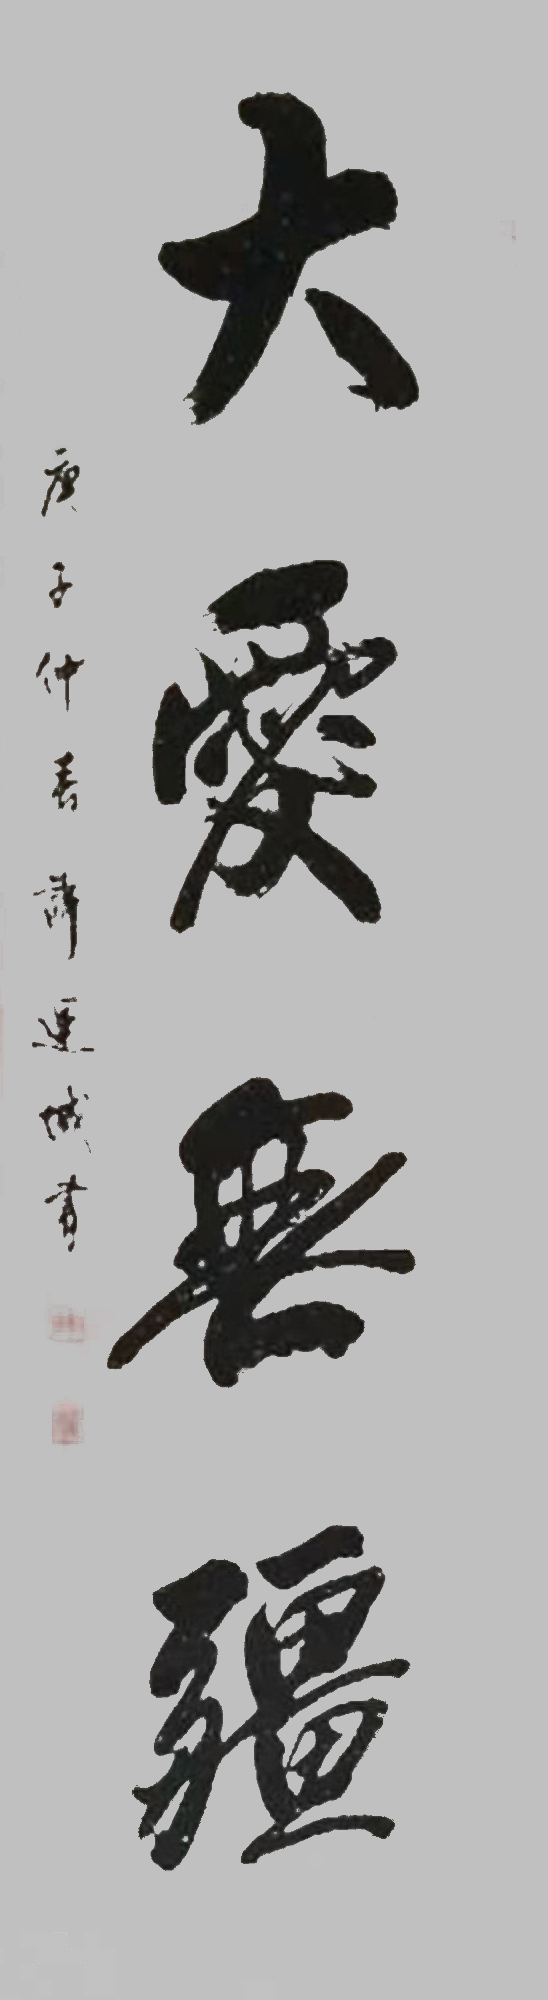 大愛無疆
庚子仲春許連城書